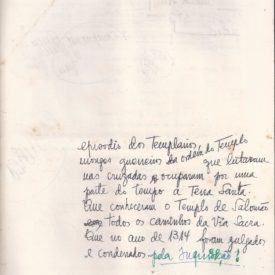 episodio dos Templarios
monges guerreiros da ordem do Templo
que lutaram
nas cruzadas e ocuparam por uma
parte do tempo a Terra Santa.
Que conheceram o Templo de Salomão
e todos os caminhos da Via Sacra.
Que no ano de 1314 foram julgados
e condenados pela Inquisição!